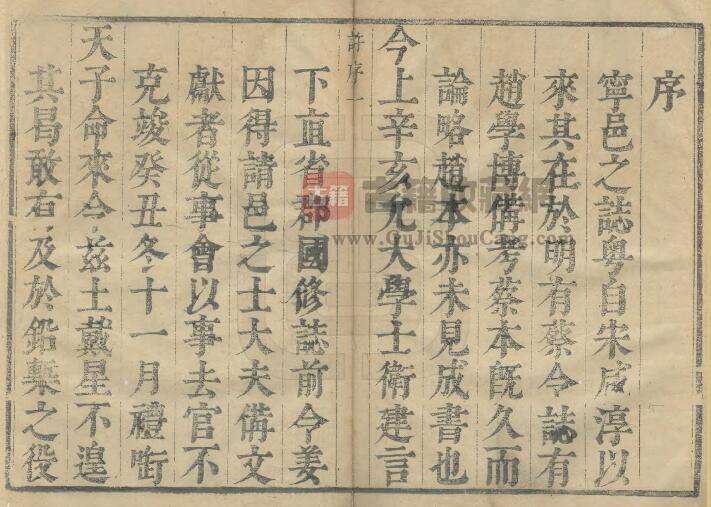 序
寧邑之誌粵自宋咸淳以
來其在於明有蔡令誌有
趙學博備考蔡本旣久而
論略趙本亦未見成書也
今上辛亥允大學士衛建言
許序一
下直省郡國修誌前令姜
因得請邑之士大夫備文
獻者從事會以事去官不
克竣癸丑冬十一月禮啣
天子命來令兹土戴星不遑
其曷敢有及於鉛槧之役
古籍
古籍收藏網
www.GuJiShouCang.com